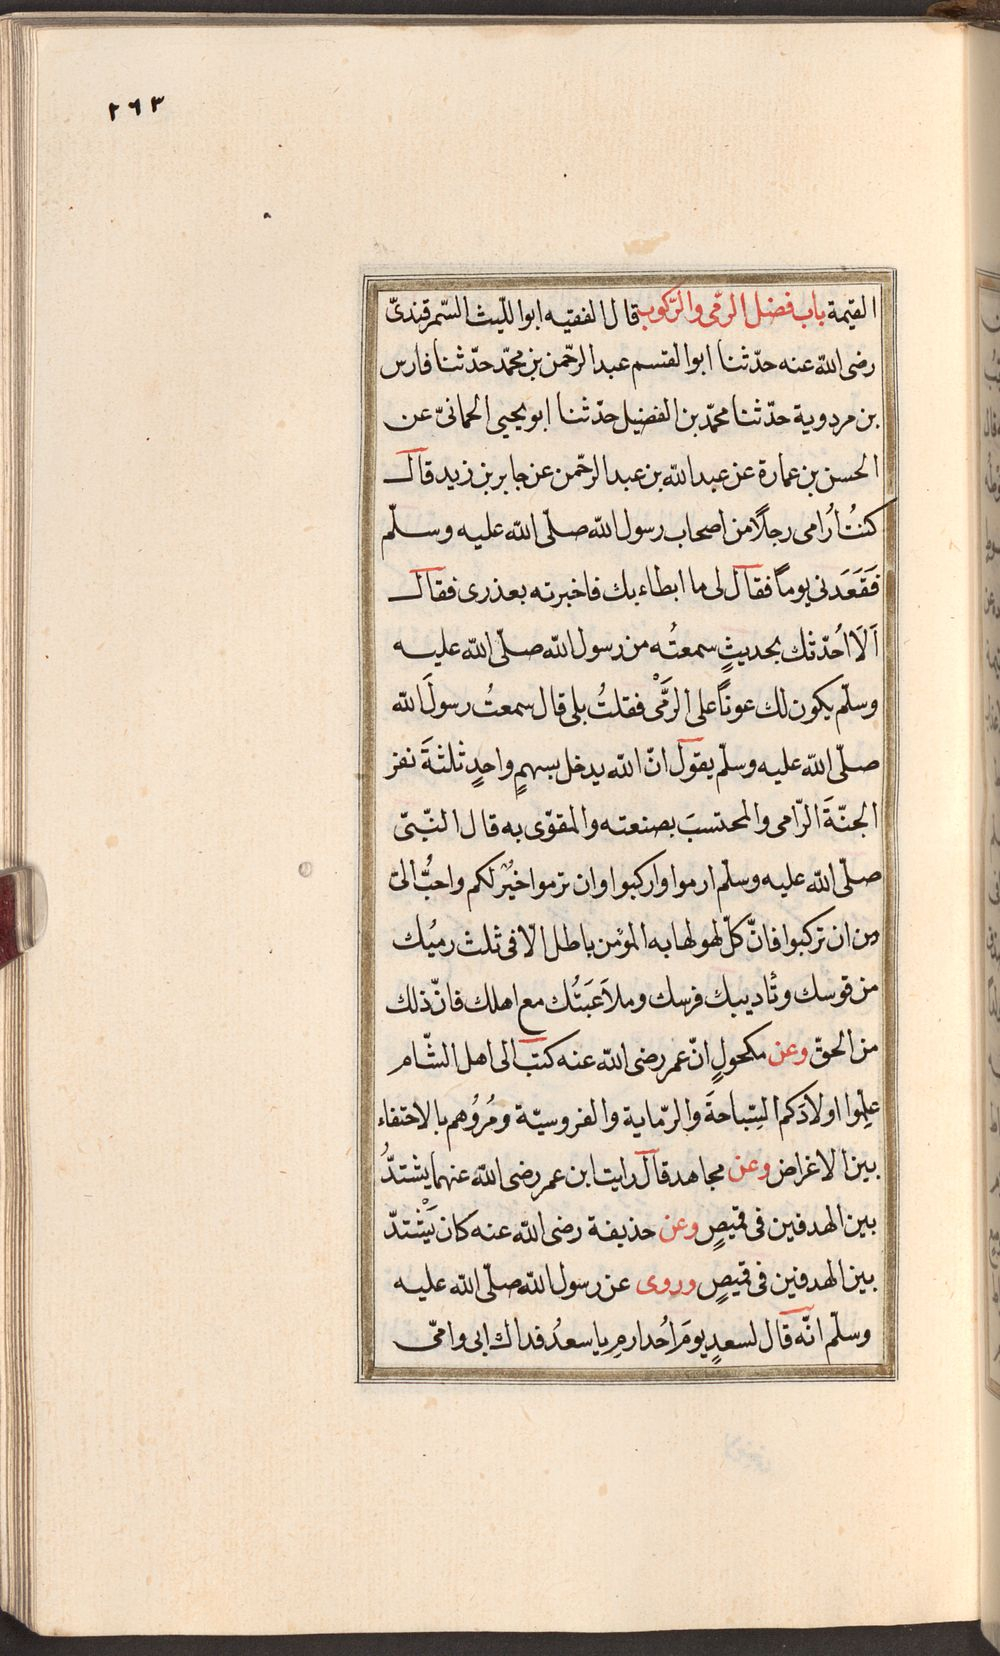 ٢٦٣
القيمة باب فضل الرّمى والرّكوب قال الفقيه ابو اللّيث السّمرقندىّ
رضى اللّه عنه حدّثنا ابو القسم عبد الرّحمن بن محمّد حدّثنا فارس
بن مردوية حدّثنا محمّد بن الفضيل حدّثنا ابو يحيى الحمانىّ عن
الحسن بن عمارة عن عبد اللّه بن عبد الرّحمن عن جابر بن زيد قال
كنتُ اُرامى رجلًا من اصحاب رسول اللّه صلّى اللّه عليه وسلّم
فَقَعَدَنى يوماً فقال لى ما ابطاء بك فاخبرته بعذرى فقال
اَلَا اُحدّثك بحديثٍ سمعتُه من رسول اللّه صلّى اللّه عليه
وسلّم يكون لك عوناً على الرَّمْى فقلتُ بلى قال سمعتُ رسولَ اللّه
صلّى اللّه عليه وسلّم يقول انّ اللّه يدخل بسهمٍ واحدٍ ثلثةَ نفر
الجنّةَ الرّامى والمحتسبَ بصنعته والمقوّى به قال النّبىّ
صلّى اللّه عليه وسلّم ارموا واركبوا وان ترموا خيرٌ لكم واحبُّ الىّ
من ان تركبوا فانّ كلّ لهو لها به المؤمن باطل الّا فى ثلث رميُك
من قوسك وتأديبك فرسك وملاَعَبَتُك مع اهلك فانّ ذلك
من الحقّ وعن مكحولٍ انّ عمر رضى اللّه عنه كتب الى اهل الشّام
علِّموا اولادَكم السِّباحةَ والرّماية والفروسيّة ومُروُهم بالاحتفاء
بين الاغراض وعن مجاهد قال رايت ابن عمر رضى اللّه عنهما يشتدُّ
بين الهدفين فى قميصٍ وعن حذيفة رضى اللّه عنه كان يَشْتدّ
بين الهدفين فى قميصٍ وروى عن رسول اللّه صلّى اللّه عليه
وسلّم انّه قال لسعدٍ يومَ اُحد ارمِ يا سعدُ فداك ابى وامّى